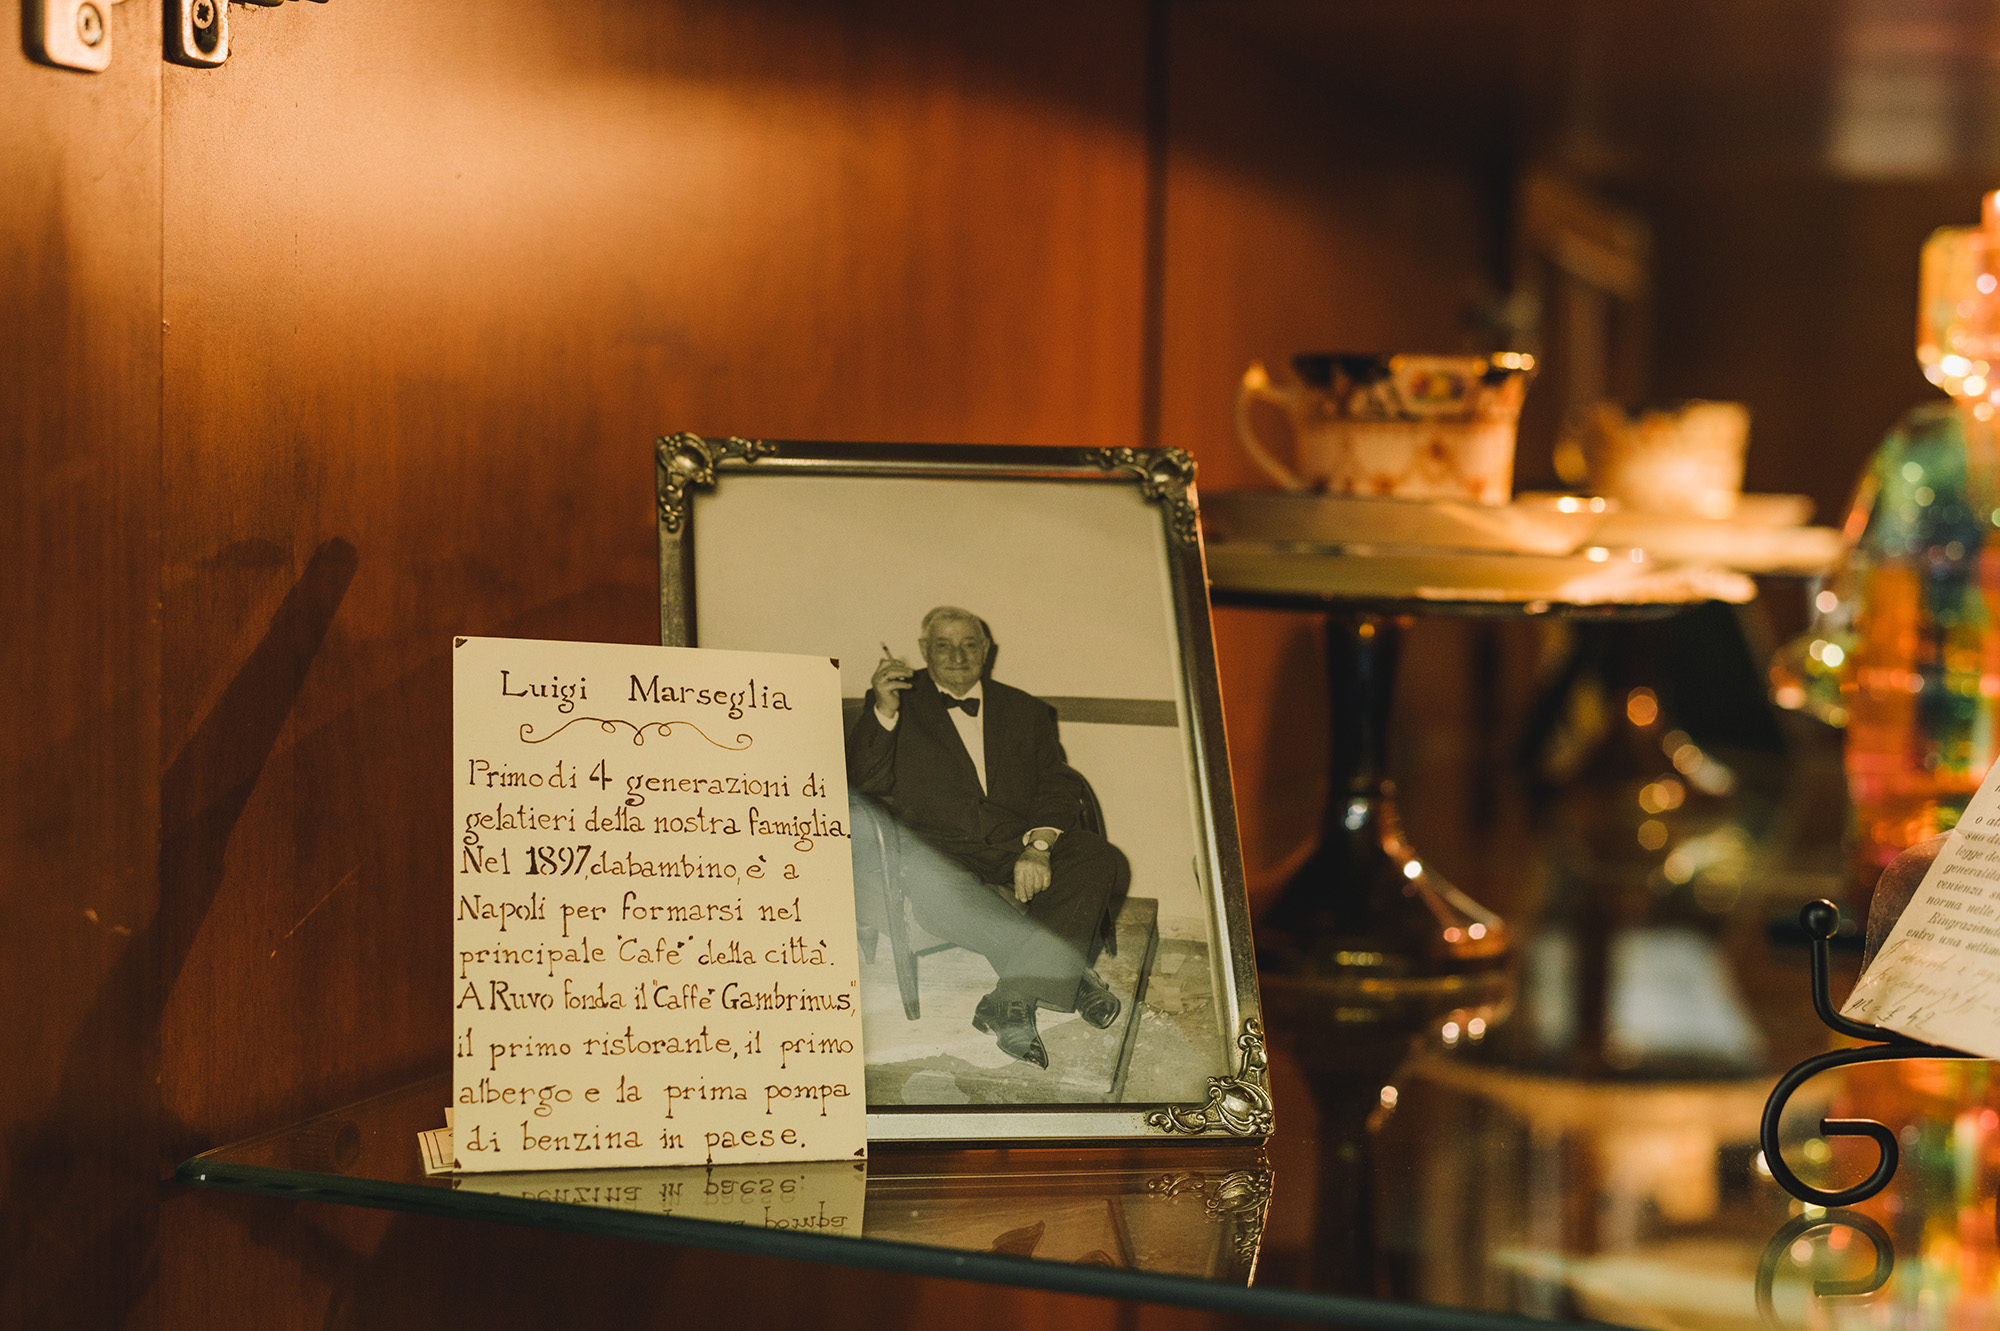 Luigi Marseglia
Primo di 4 generazioni di
gelatieri della nostra famiglia.
Nel 1897, da bambino, è a
Napoli per formarsi nel
principale "Cafè" della città.
A Ruvo fonda il "Caffè Gambrinus",
il primo ristorante, il primo
albergo e la prima pompa
di benzina in paese.
suo di
legge de
generalità
venienza s
norma nelle
Ringraziand
entro una settim